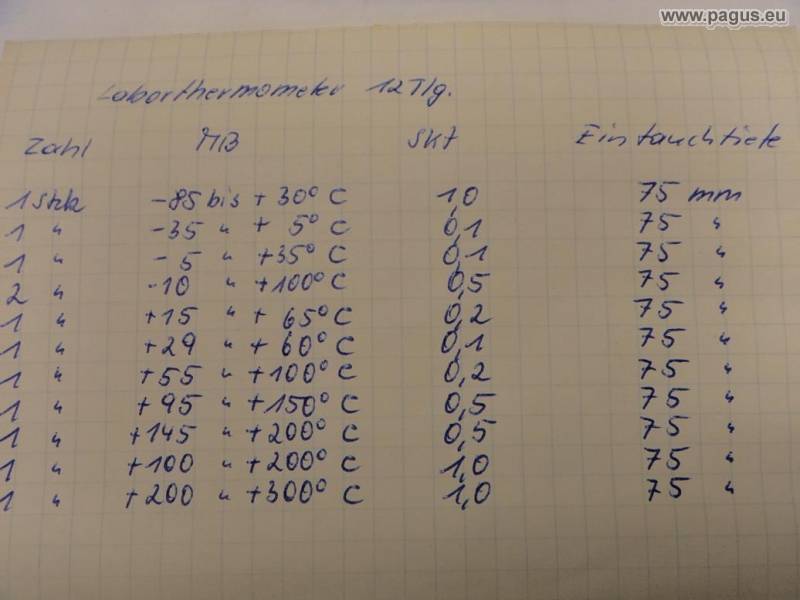 www.pagus.eu
Laborthermometer 12Tlg.
Zahl MB SKT Eintauchtiefe
1 Stck -85 bis +30° C 1,0 75 mm
1 " -35 " + 5° C 0,1 75 "
1 " -5 " +35° C 0,1 75 "
2 " -10 " +100° C 0,5 75 "
1 " +15 " + 65° C 0,2 75 "
1 " +29 " + 60° C 0,1 75 "
1 " +55 " +100° C 0,2 75 "
1 " +95 " +150° C 0,5 75 "
1 " +145 " +200° C 0,5 75 "
1 " +100 " +200° C 1,0 75 "
1 " +200 " +300° C 1,0 75 "